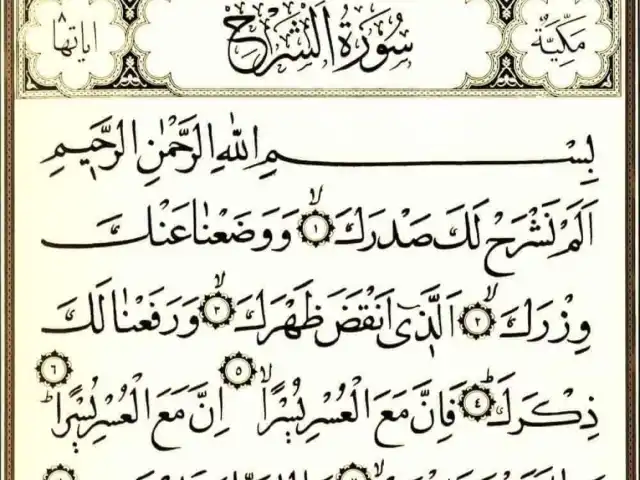 مَكِّيَّةٌ سُورَةُ الشَّرْحِ اٰيَاتُهَا ٨
بِسْمِ اللّٰهِ الرَّحْمٰنِ الرَّحٖيمِ
اَلَمْ نَشْرَحْ لَكَ صَدْرَكَۙ ﴿١﴾ وَوَضَعْنَا عَنْكَ
وِزْرَكَۙ ﴿٢﴾ اَلَّذٖٓي اَنْقَضَ ظَهْرَكَۙ ﴿٣﴾ وَرَفَعْنَا لَكَ
ذِكْرَكَؕ ﴿٤﴾ فَاِنَّ مَعَ الْعُسْرِ يُسْراًۙ ﴿٥﴾ اِنَّ مَعَ الْعُسْرِ يُسْراًؕ ﴿٦﴾